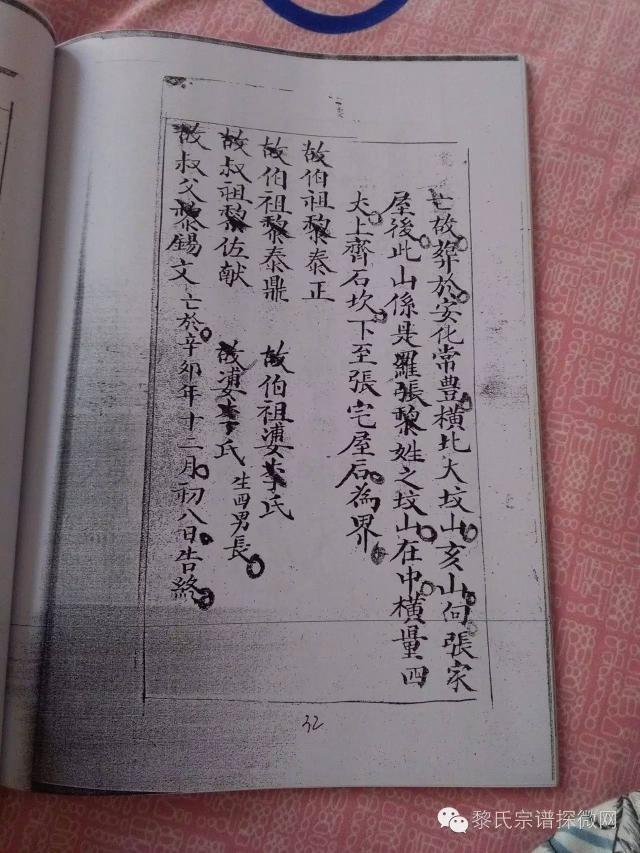 亡故葬於安化常豊橫北大坟山亥山向張家
屋後此山係是羅張黎姓之坟山在中橫量四
丈上齊石坎下至張宅屋后為界
故伯祖黎泰正
故伯祖黎泰鼎 故伯祖婆李氏
故叔祖黎佐献 故婆李氏生四男長
故叔父黎錫文亡於辛卯年十二月初八日告終
32
黎氏宗谱探微网